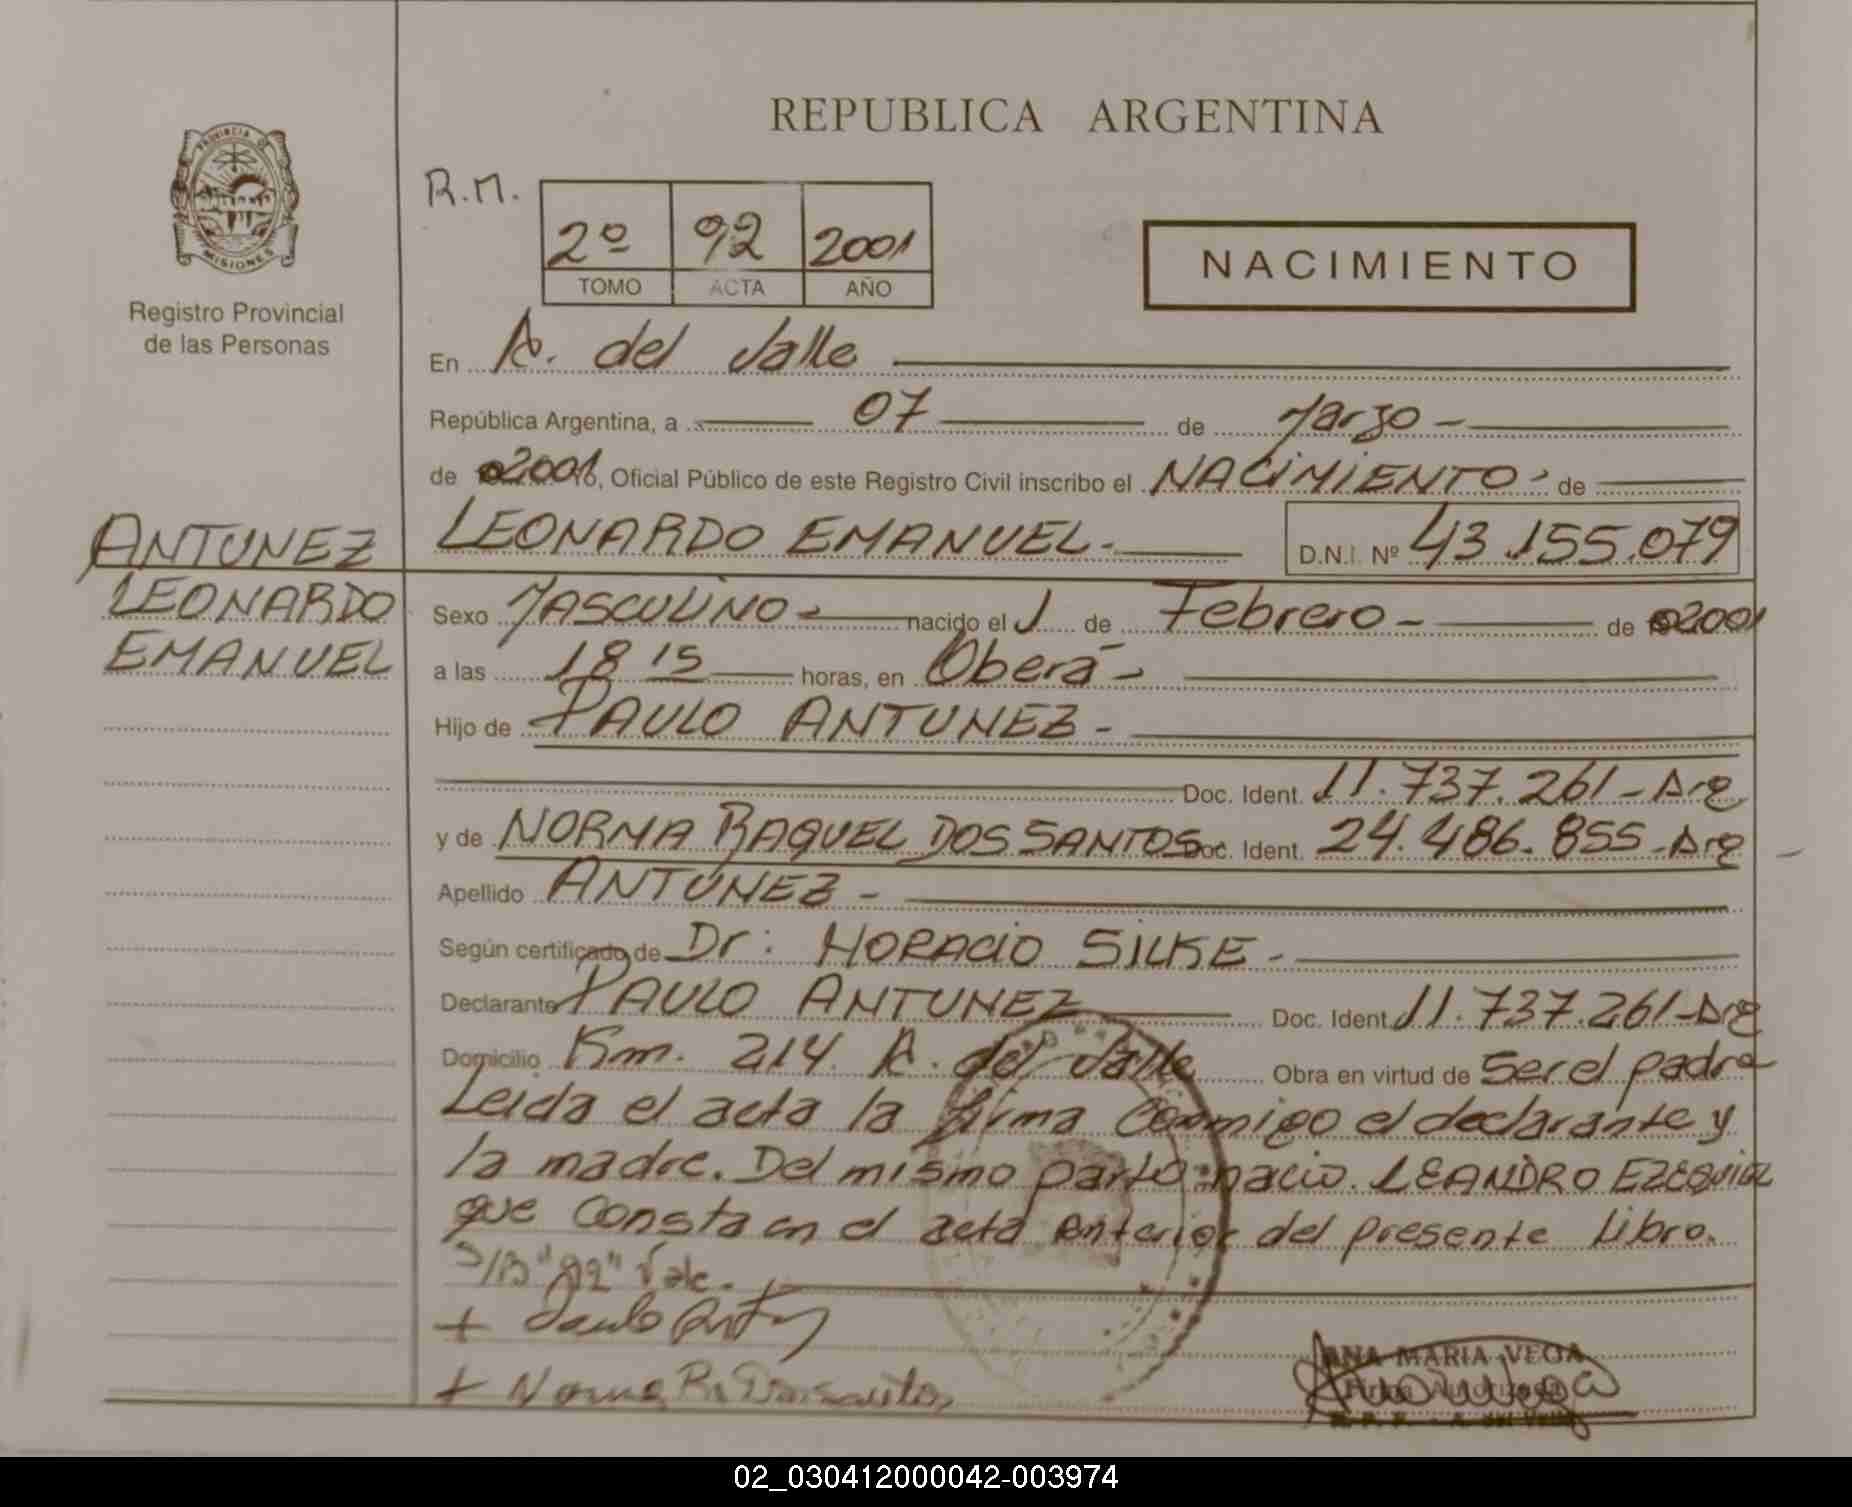 PROVINCIA DE
MISIONES
Registro Provincial
de las Personas
ANTUNEZ
LEONARDO
EMANUEL
REPUBLICA ARGENTINA
R.M.
2º 92 2001
TOMO ACTA AÑO
NACIMIENTO
En A. del Valle
República Argentina, a 07 de Marzo
de 2001, Oficial Público de este Registro Civil inscribo el NACIMIENTO de
LEONARDO EMANUEL D.N.I. Nº 43.155.079
Sexo MASCULINO nacido el 1 de Febrero de 2001
a las 18 15 horas, en Oberá
Hijo de PAULO ANTUNEZ
Doc. Ident. 11.737.261-Arg
y de NORMA RAQUEL DOS SANTOS Doc. Ident. 24.486.855-Arg
Apellido ANTUNEZ
Según certificado de Dr: HORACIO SILKE
Declarante PAULO ANTUNEZ Doc. Ident. 11.737.261-Arg
Domicilio Km. 214. A. del Valle Obra en virtud de ser el padre
Leida el acta la firma conmigo el declarante y
la madre. Del mismo parto nacio. LEANDRO EZEQUIEL
que consta en el acta anterior del presente Libro.
S/B "92" Vale.
+ Paulo Antunez
+ Norma R. Dos Santos
ANA MARIA VEGA
02_030412000042-003974